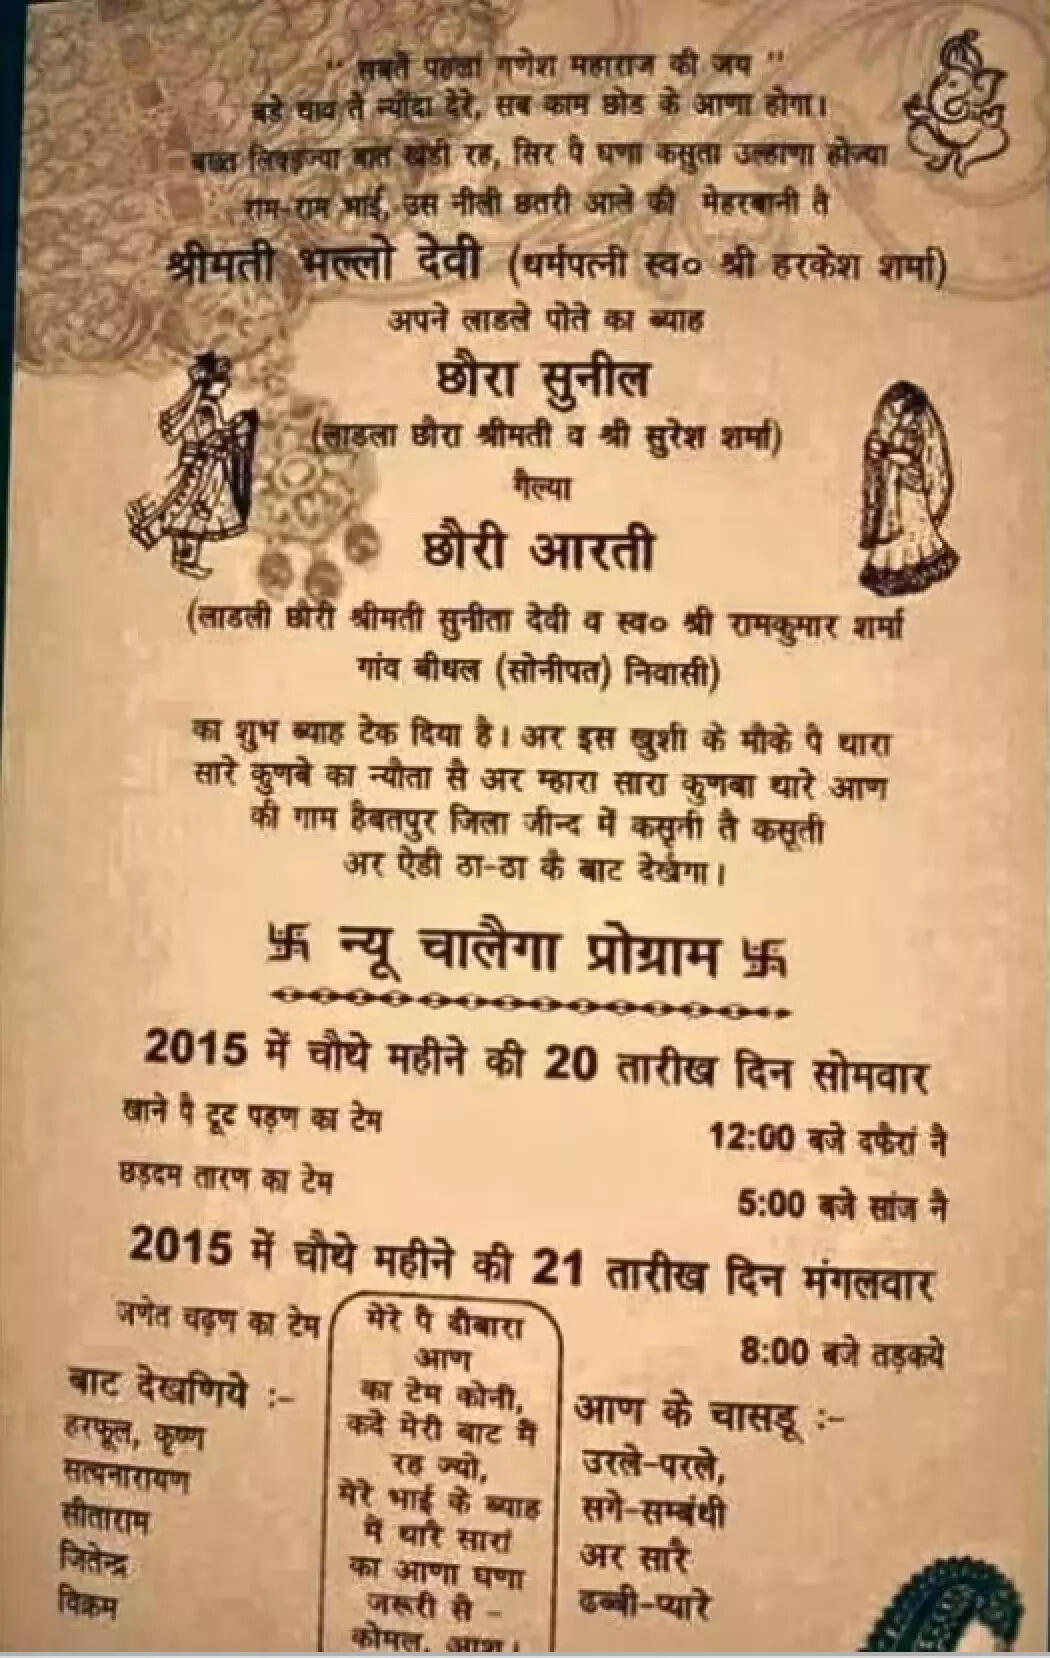 " सबतै पहलां गणेश महाराज की जय "
बडे चाव तै न्यौंदा देरे, सब काम छोड के आणा होगा।
बख्त लिकड़ज्या बात खडी रह, सिर पै घणा कसुता उल्हाणा होज्या
राम-राम भाई, उस नीली छतरी आले की मेहरबानी तै
श्रीमती भल्लो देवी (धर्मपत्नी स्व० श्री हरकेश शर्मा)
अपने लाडले पोते का ब्याह
छौरा सुनील
(लाडला छौरा श्रीमती व श्री सुरेश शर्मा)
गैल्या
छौरी आरती
(लाडली छौरी श्रीमती सुनीता देवी व स्व० श्री रामकुमार शर्मा
गांव बीधल (सोनीपत) निवासी)
का शुभ ब्याह टेक दिया है। अर इस खुशी के मौके पै थारा
सारे कुणबे का न्यौता सै अर म्हारा सारा कुणबा थारे आण
की गाम हैबतपुर जिला जीन्द में कसूती तै कसूती
अर ऐडी ठा-ठा कै बाट देखैगा।
卐 न्यू चालैगा प्रोग्राम 卐
2015 में चौथे महीने की 20 तारीख दिन सोमवार
खाने पै टूट पड़ण का टेम 12:00 बजे दफैरां नै
छड़दम तारण का टेम 5:00 बजे सांज नै
2015 में चौथे महीने की 21 तारीख दिन मंगलवार
जणेत चढ़ण का टेम 8:00 बजे तड़कये
बाट देखणिये :-
हरफूल, कृष्ण
सत्यनारायण
सीताराम
जितेन्द्र
विक्रम
मेरे पै दीबारा
आण
का टेम कोनी,
कदे मेरी बाट मैं
रह ज्यो,
मेरे भाई के ब्याह
में थारै सारां
का आणा घणा
जरूरी सै -
कोमल, आशु।
आण के चासडू :-
उरले-परले,
सगे-सम्बंधी
अर सारै
ढब्बी-प्यारे